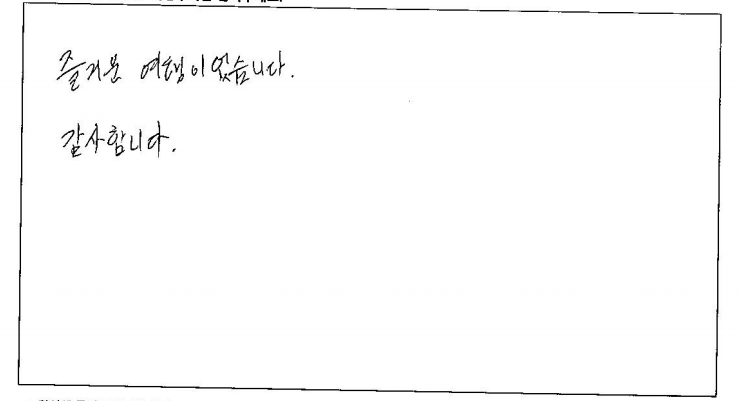 즐거운 여행이었습니다.
감사합니다.